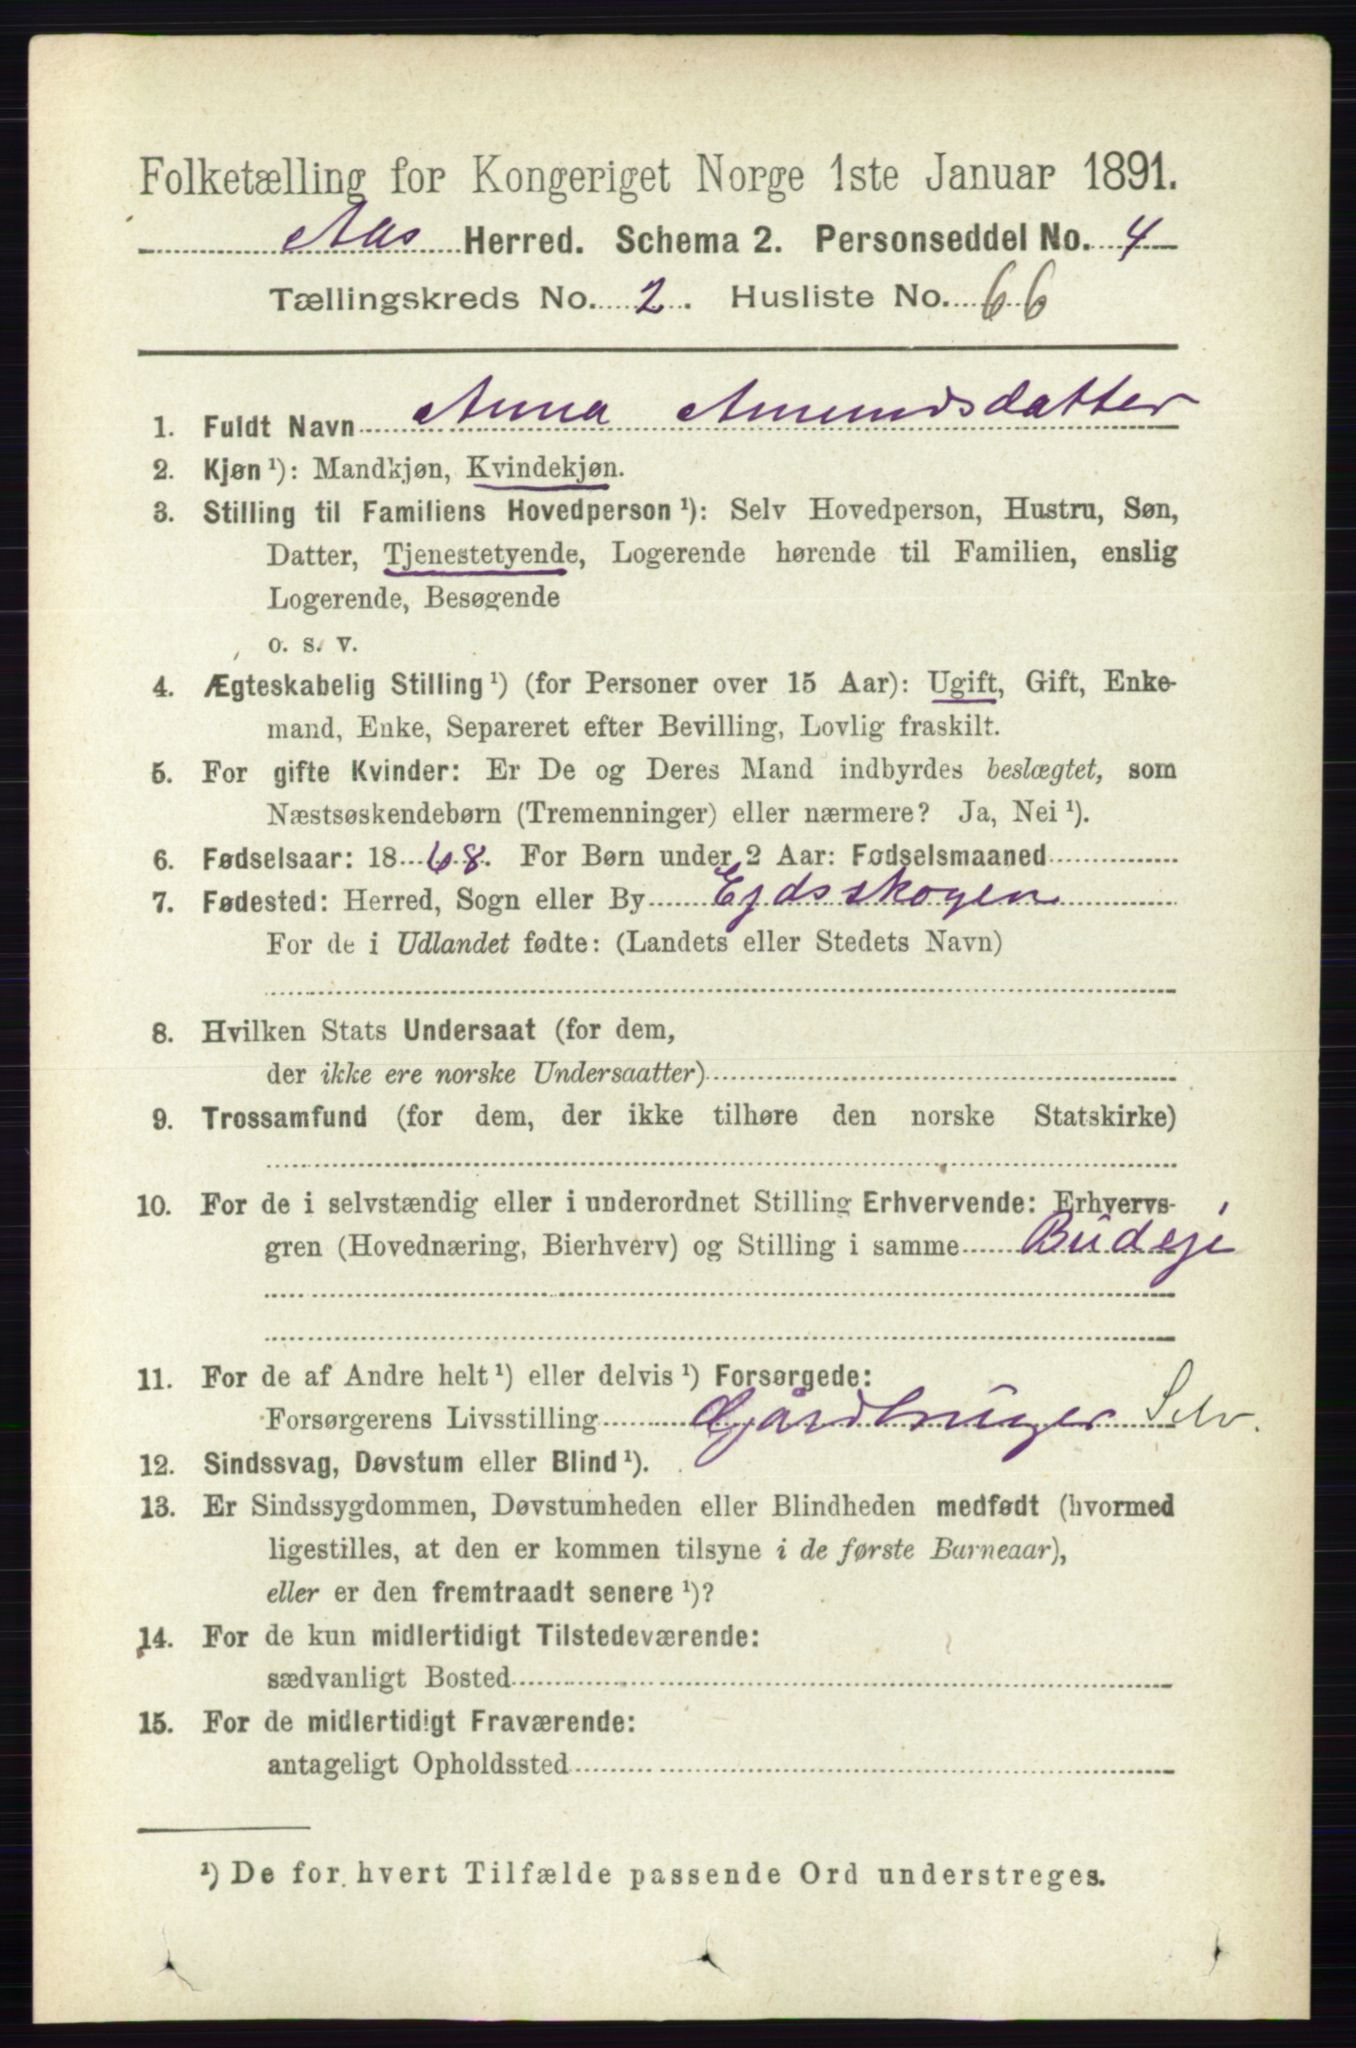 Folketælling for Kongeriget Norge 1ste Januar 1891.
Aas Herred. Schema 2. Personseddel No. 4
Tællingskreds No. 2. Husliste No. 66
1. Fuldt Navn Anna Amundsdatter
2. Kjøn ¹): Mandkjøn, Kvindekjøn.
3. Stilling til Familiens Hovedperson ¹): Selv Hovedperson, Hustru, Søn,
Datter, Tjenestetyende, Logerende hørende til Familien, enslig
Logerende, Besøgende
o. s. v.
4. Ægteskabelig Stilling ¹) (for Personer over 15 Aar): Ugift, Gift, Enke-
mand, Enke, Separeret efter Bevilling, Lovlig fraskilt.
5. For gifte Kvinder: Er De og Deres Mand indbyrdes beslægtet, som
Næstsøskendebørn (Tremenninger) eller nærmere? Ja, Nei ¹).
6. Fødselsaar: 1868. For Børn under 2 Aar: Fødselsmaaned
7. Fødested: Herred, Sogn eller By Ejdsskogen
For de i Udlandet fødte: (Landets eller Stedets Navn)
8. Hvilken Stats Undersaat (for dem,
der ikke ere norske Undersaatter)
9. Trossamfund (for dem, der ikke tilhøre den norske Statskirke)
10. For de i selvstændig eller i underordnet Stilling Erhvervende: Erhvervs-
gren (Hovednæring, Bierhverv) og Stilling i samme Budeje
11. For de af Andre helt ¹) eller delvis ¹) Forsørgede:
Forsørgerens Livsstilling Gårdbruger Selv.
12. Sindssvag, Døvstum eller Blind ¹).
13. Er Sindssygdommen, Døvstumheden eller Blindheden medfødt (hvormed
ligestilles, at den er kommen tilsyne i de første Barneaar),
eller er den fremtraadt senere ¹)?
14. For de kun midlertidigt Tilstedeværende:
sædvanligt Bosted
15. For de midlertidigt Fraværende:
antageligt Opholdssted
¹) De for hvert Tilfælde passende Ord understreges.